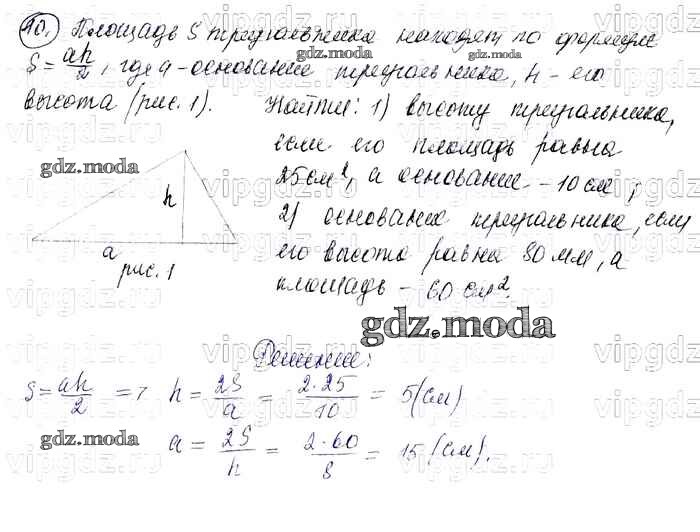 10. Площадь S треугольника находят по формуле
S = ah/2, где a - основание треугольника, h - его
высота (рис. 1). Найти: 1) высоту треугольника,
если его площадь равна
25 см², а основание - 10 см;
2) основание треугольника, если
его высота равна 80 мм, а
площадь - 60 см².
h
a
рис. 1
Решение:
S = ah/2 => h = 2S/a = 2·25/10 = 5 (см)
a = 2S/h = 2·60/8 = 15 (см).
gdz.moda
gdz.moda
gdz.moda
gdz.moda
gdz.moda
gdz.moda
vipgdz.ru